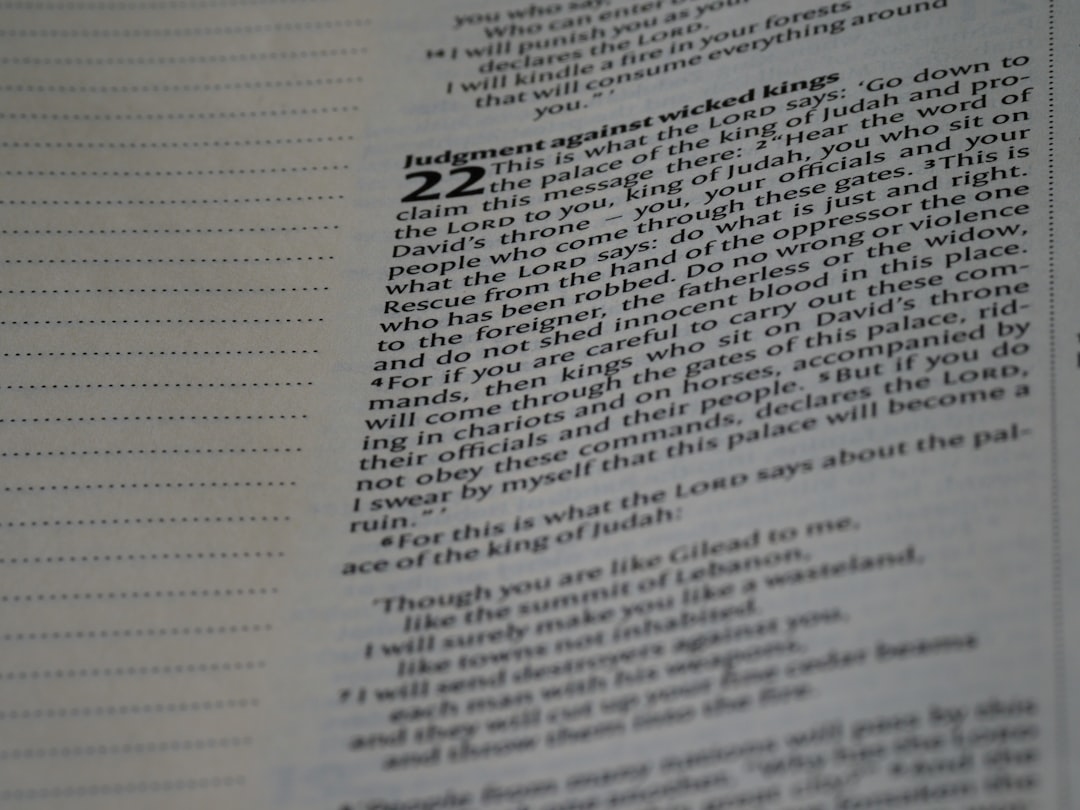 you who say,
Who can enter
14 I will punish you as your
declares the LORD.
I will kindle a fire in your forests
that will consume everything around
you.” ’
Judgment against wicked kings
22 This is what the LORD says: ‘Go down to
the palace of the king of Judah and pro-
claim this message there: 2 “Hear the word of
the LORD to you, king of Judah, you who sit on
David’s throne – you, your officials and your
people who come through these gates. 3 This is
what the LORD says: do what is just and right.
Rescue from the hand of the oppressor the one
who has been robbed. Do no wrong or violence
to the foreigner, the fatherless or the widow,
and do not shed innocent blood in this place.
4 For if you are careful to carry out these com-
mands, then kings who sit on David’s throne
will come through the gates of this palace, rid-
ing in chariots and on horses, accompanied by
their officials and their people. 5 But if you do
not obey these commands, declares the LORD,
I swear by myself that this palace will become a
ruin.” ’
6 For this is what the LORD says about the pal-
ace of the king of Judah:
‘Though you are like Gilead to me,
like the summit of Lebanon,
I will surely make you like a wasteland,
like towns not inhabited.
7 I will send destroyers against you,
each man with his weapons,
and they will cut up your fine cedar beams
and throw them into the fire.
8 ‘People from many nations will pass by this